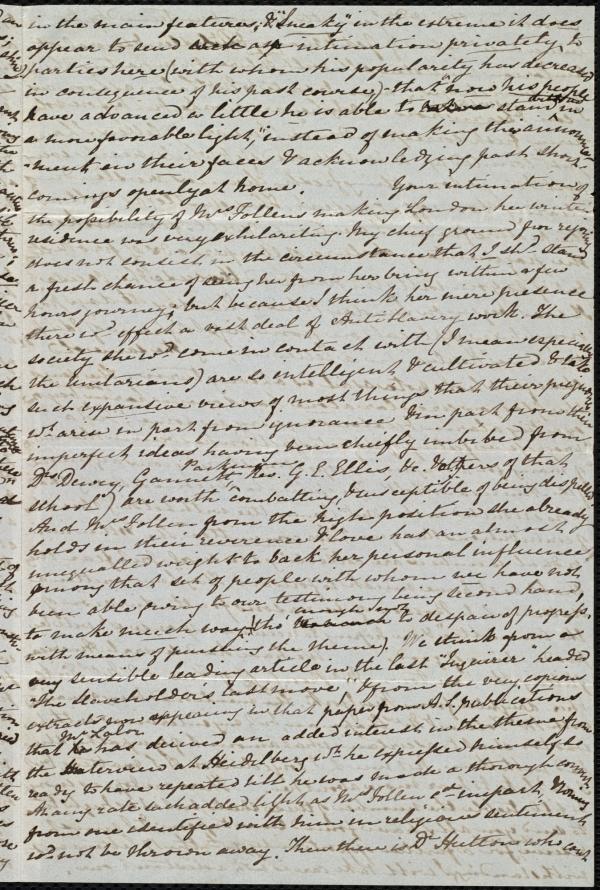 in the main features; & "sneaky" in the extreme it does
appear to send such an intimation privately to
parties here (with whom his popularity has decreased
in consequence of his past course) that "now his people
have advanced a little he is able to stand in
a more favorable light," instead of making the announce-
ment in their faces & acknowledging past short-
comings openly at home. Your intimation of
the possibility of Mrs Follen's making London her winter
residence was very exhilarating. My chief ground for rejoicing
does not consist in the circumstance that I shd stand
a fresh chance of seeing her from her being within a few
hours journey; but because I think her mere presence
there wd effect a vast deal of Anti Slavery work. The
society she wd come in contact with (I mean especially
the Unitarians) are so intelligent & cultivated & take
such expansive views of most things that their prejudices
wh arise in part from ignorance & in part from their
imperfect ideas having been chiefly imbibed from
Drs Dewey, Gannett, Parkman, Rev. G. E. Ellis, &c. & others of that
school) are worth combatting & susceptible of being dispelled.
And Mrs Follen from the high position she already
holds in their reverence & love has an almost
unequalled weight to back her personal influence
among that set of people with whom we have not
been able owing to our testimony being second hand,
to make much way, (tho' enough not to despair of progress,
with means of pursuing the theme). We think from a
very sensible leading article in the last "Inquirer" headed
"The Slaveholder's last move", & from the very copious
extracts now appearing in that paper from A.S. publications
that Mr Lalor has derived an added interest in the theme from
the interview at Heidelberg wh he expressed himself so
ready to have repeated till he was made a thorough convert.
At any rate such added light as Mrs Follen cd impart, & coming
from one identified with him in religious sentiment
wd not be thrown away. Then there is Dr Hutton who